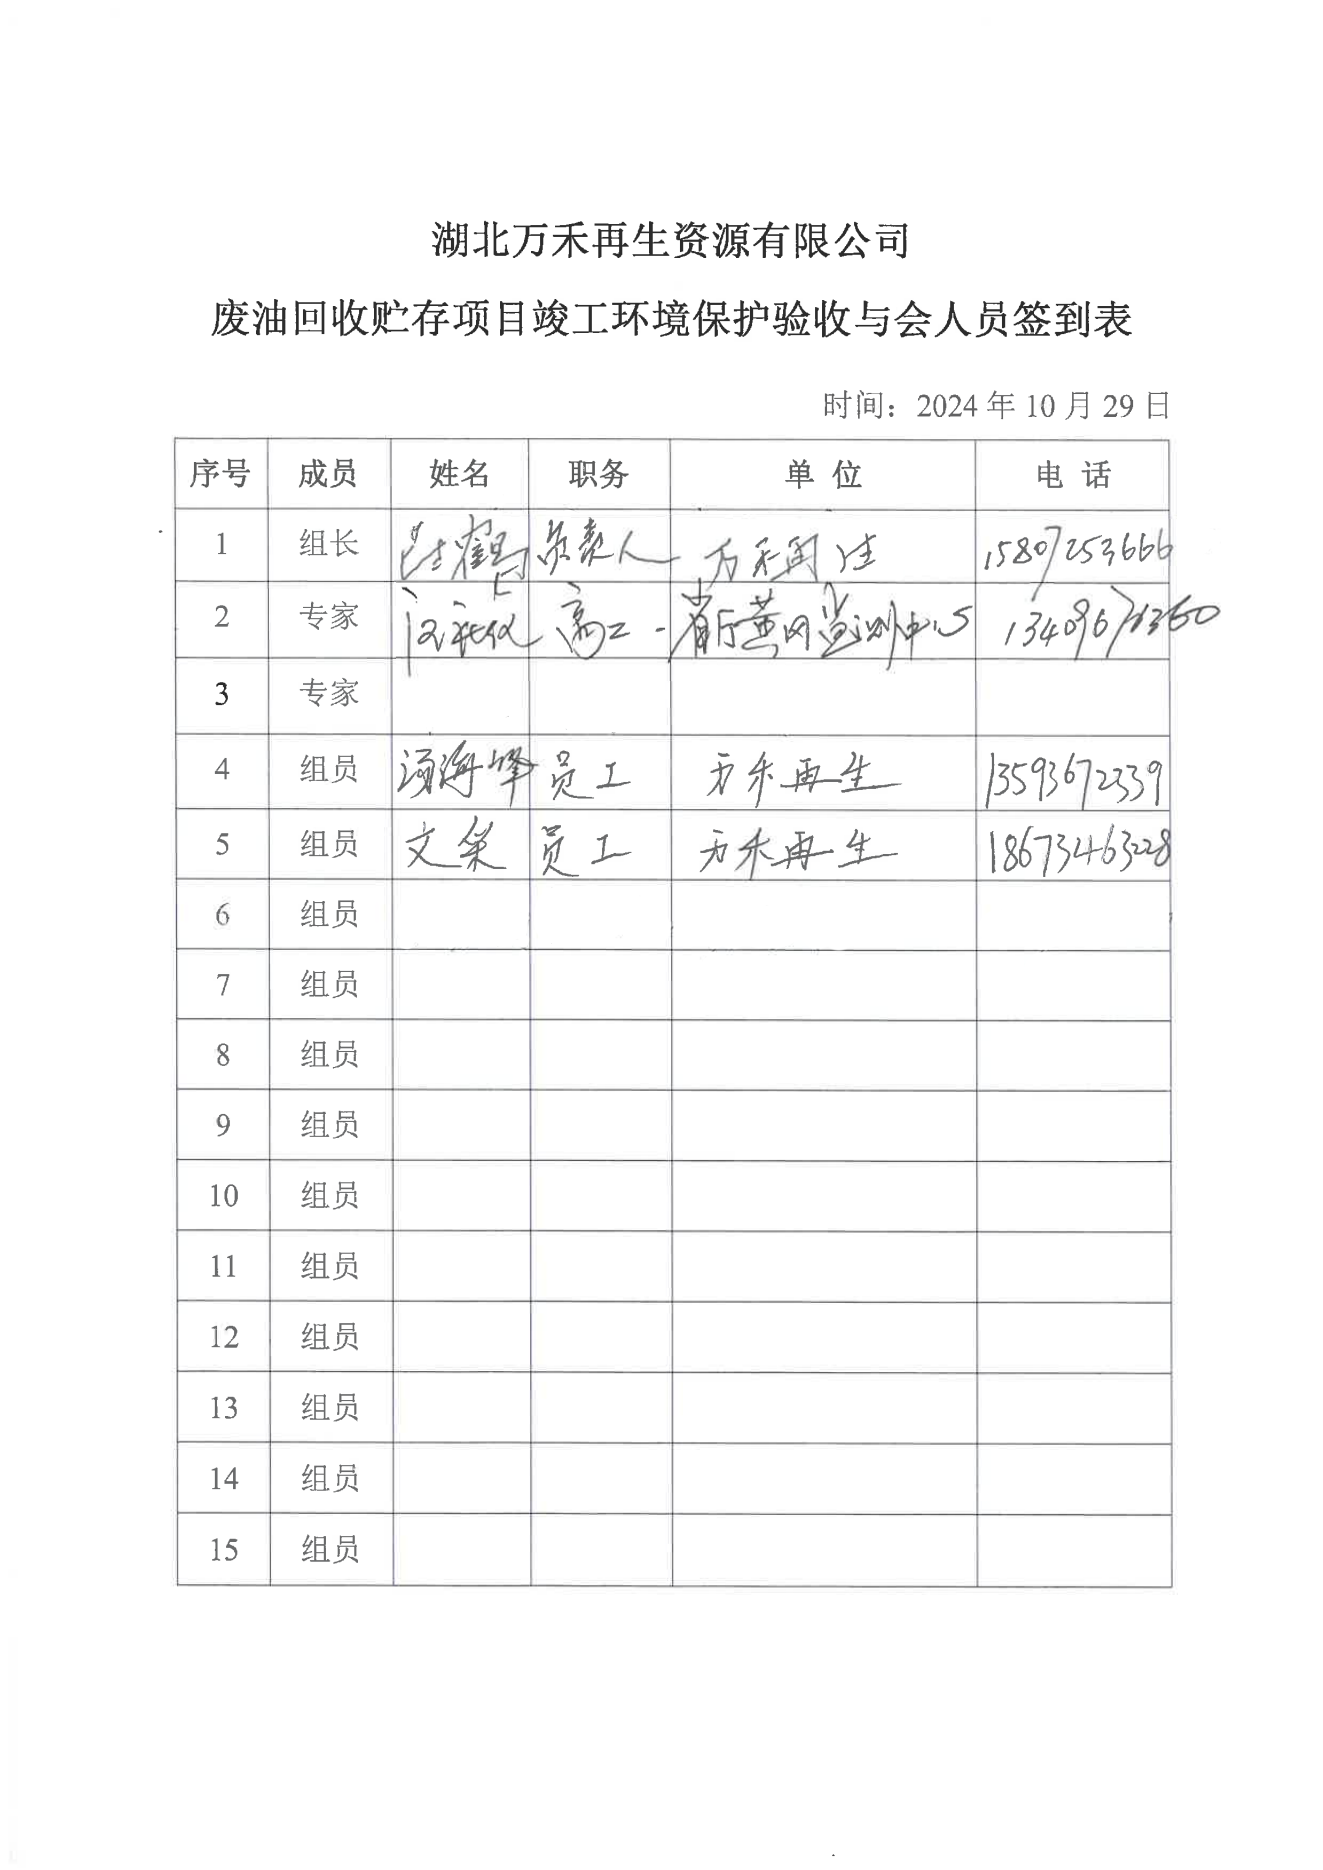 湖北万禾再生资源有限公司
废油回收贮存项目竣工环境保护验收与会人员签到表
时间：2024年10月29日
序号 成员 姓名 职务 单 位 电 话
1 组长 鹤 负责人 万禾再生 15807253666
2 专家 高工 省厅黄冈监测中心
3 专家
4 组员 海峰 员工 万禾再生 13593672339
5 组员 文 员工 万禾再生 18673463228
6 组员
7 组员
8 组员
9 组员
10 组员
11 组员
12 组员
13 组员
14 组员
15 组员